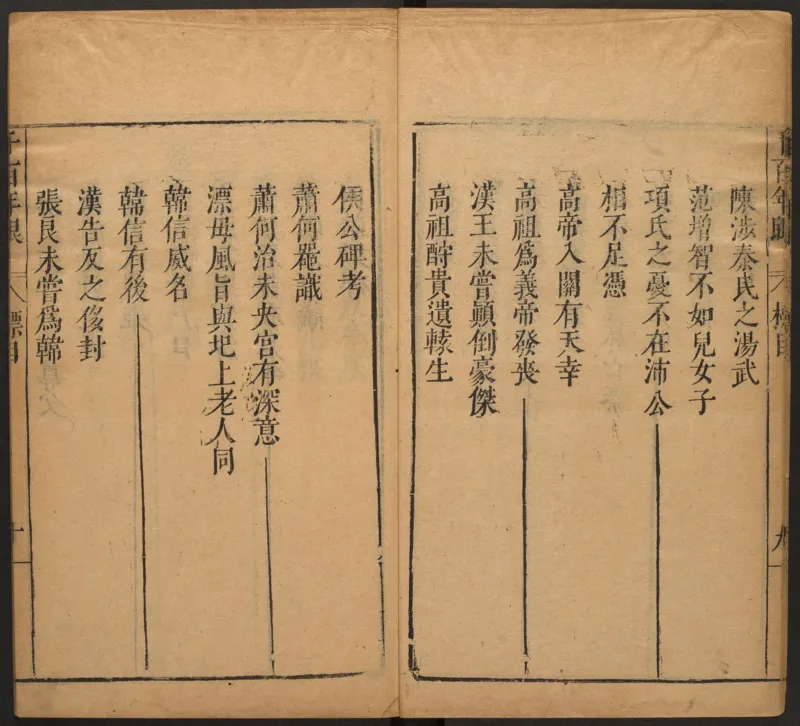 陳涉秦氏之湯武
范增智不如兒女子
項氏之憂不在沛公
相不足憑
高帝入關有天幸
高祖爲義帝發喪
漢王未嘗顛倒豪傑
高祖酧貴遺轅生
九
侯公碑考
蕭何菴讖
蕭何治未央宫有深意
漂毋風旨與圯上老人同
韓信威名
韓信有後
漢告反之侈封
張良未嘗爲韓
千百年眼
標目
十